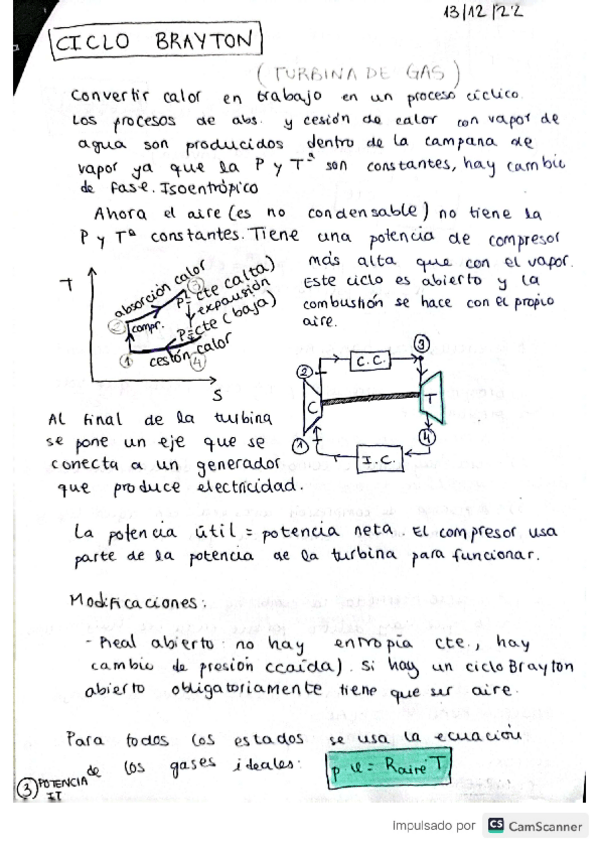 13/12/22
CICLO BRAYTON
(TURBINA DE GAS)
Convertir calor en trabajo en un proceso cíclico.
Los procesos de abs. y cesión de calor con vapor de
agua son producidos dentro de la campana de
vapor ya que la P y Tª son constantes, hay cambio
de fase. Isoentrópico
Ahora el aire (es no condensable) no tiene la
P y Tª constantes. Tiene una potencia de compresor
más alta que con el vapor.
Este ciclo es abierto y la
combustión se hace con el propio
aire.
T
absorción calor
P=cte (alta)
3
expansión
2
compr.
P=cte (baja)
1
cesión calor
4
S
2
C.C.
3
C
T
1
I.C.
4
Al final de la turbina
se pone un eje que se
conecta a un generador
que produce electricidad.
La potencia útil = potencia neta. El compresor usa
parte de la potencia de la turbina para funcionar.
Modificaciones:
- Real abierto: no hay entropía cte., hay
cambio de presión (caída). Si hay un ciclo Brayton
abierto obligatoriamente tiene que ser aire.
Para todos los estados se usa la ecuación
de los gases ideales:
p v = Raire T
3 POTENCIA
IT
Impulsado por CS CamScanner